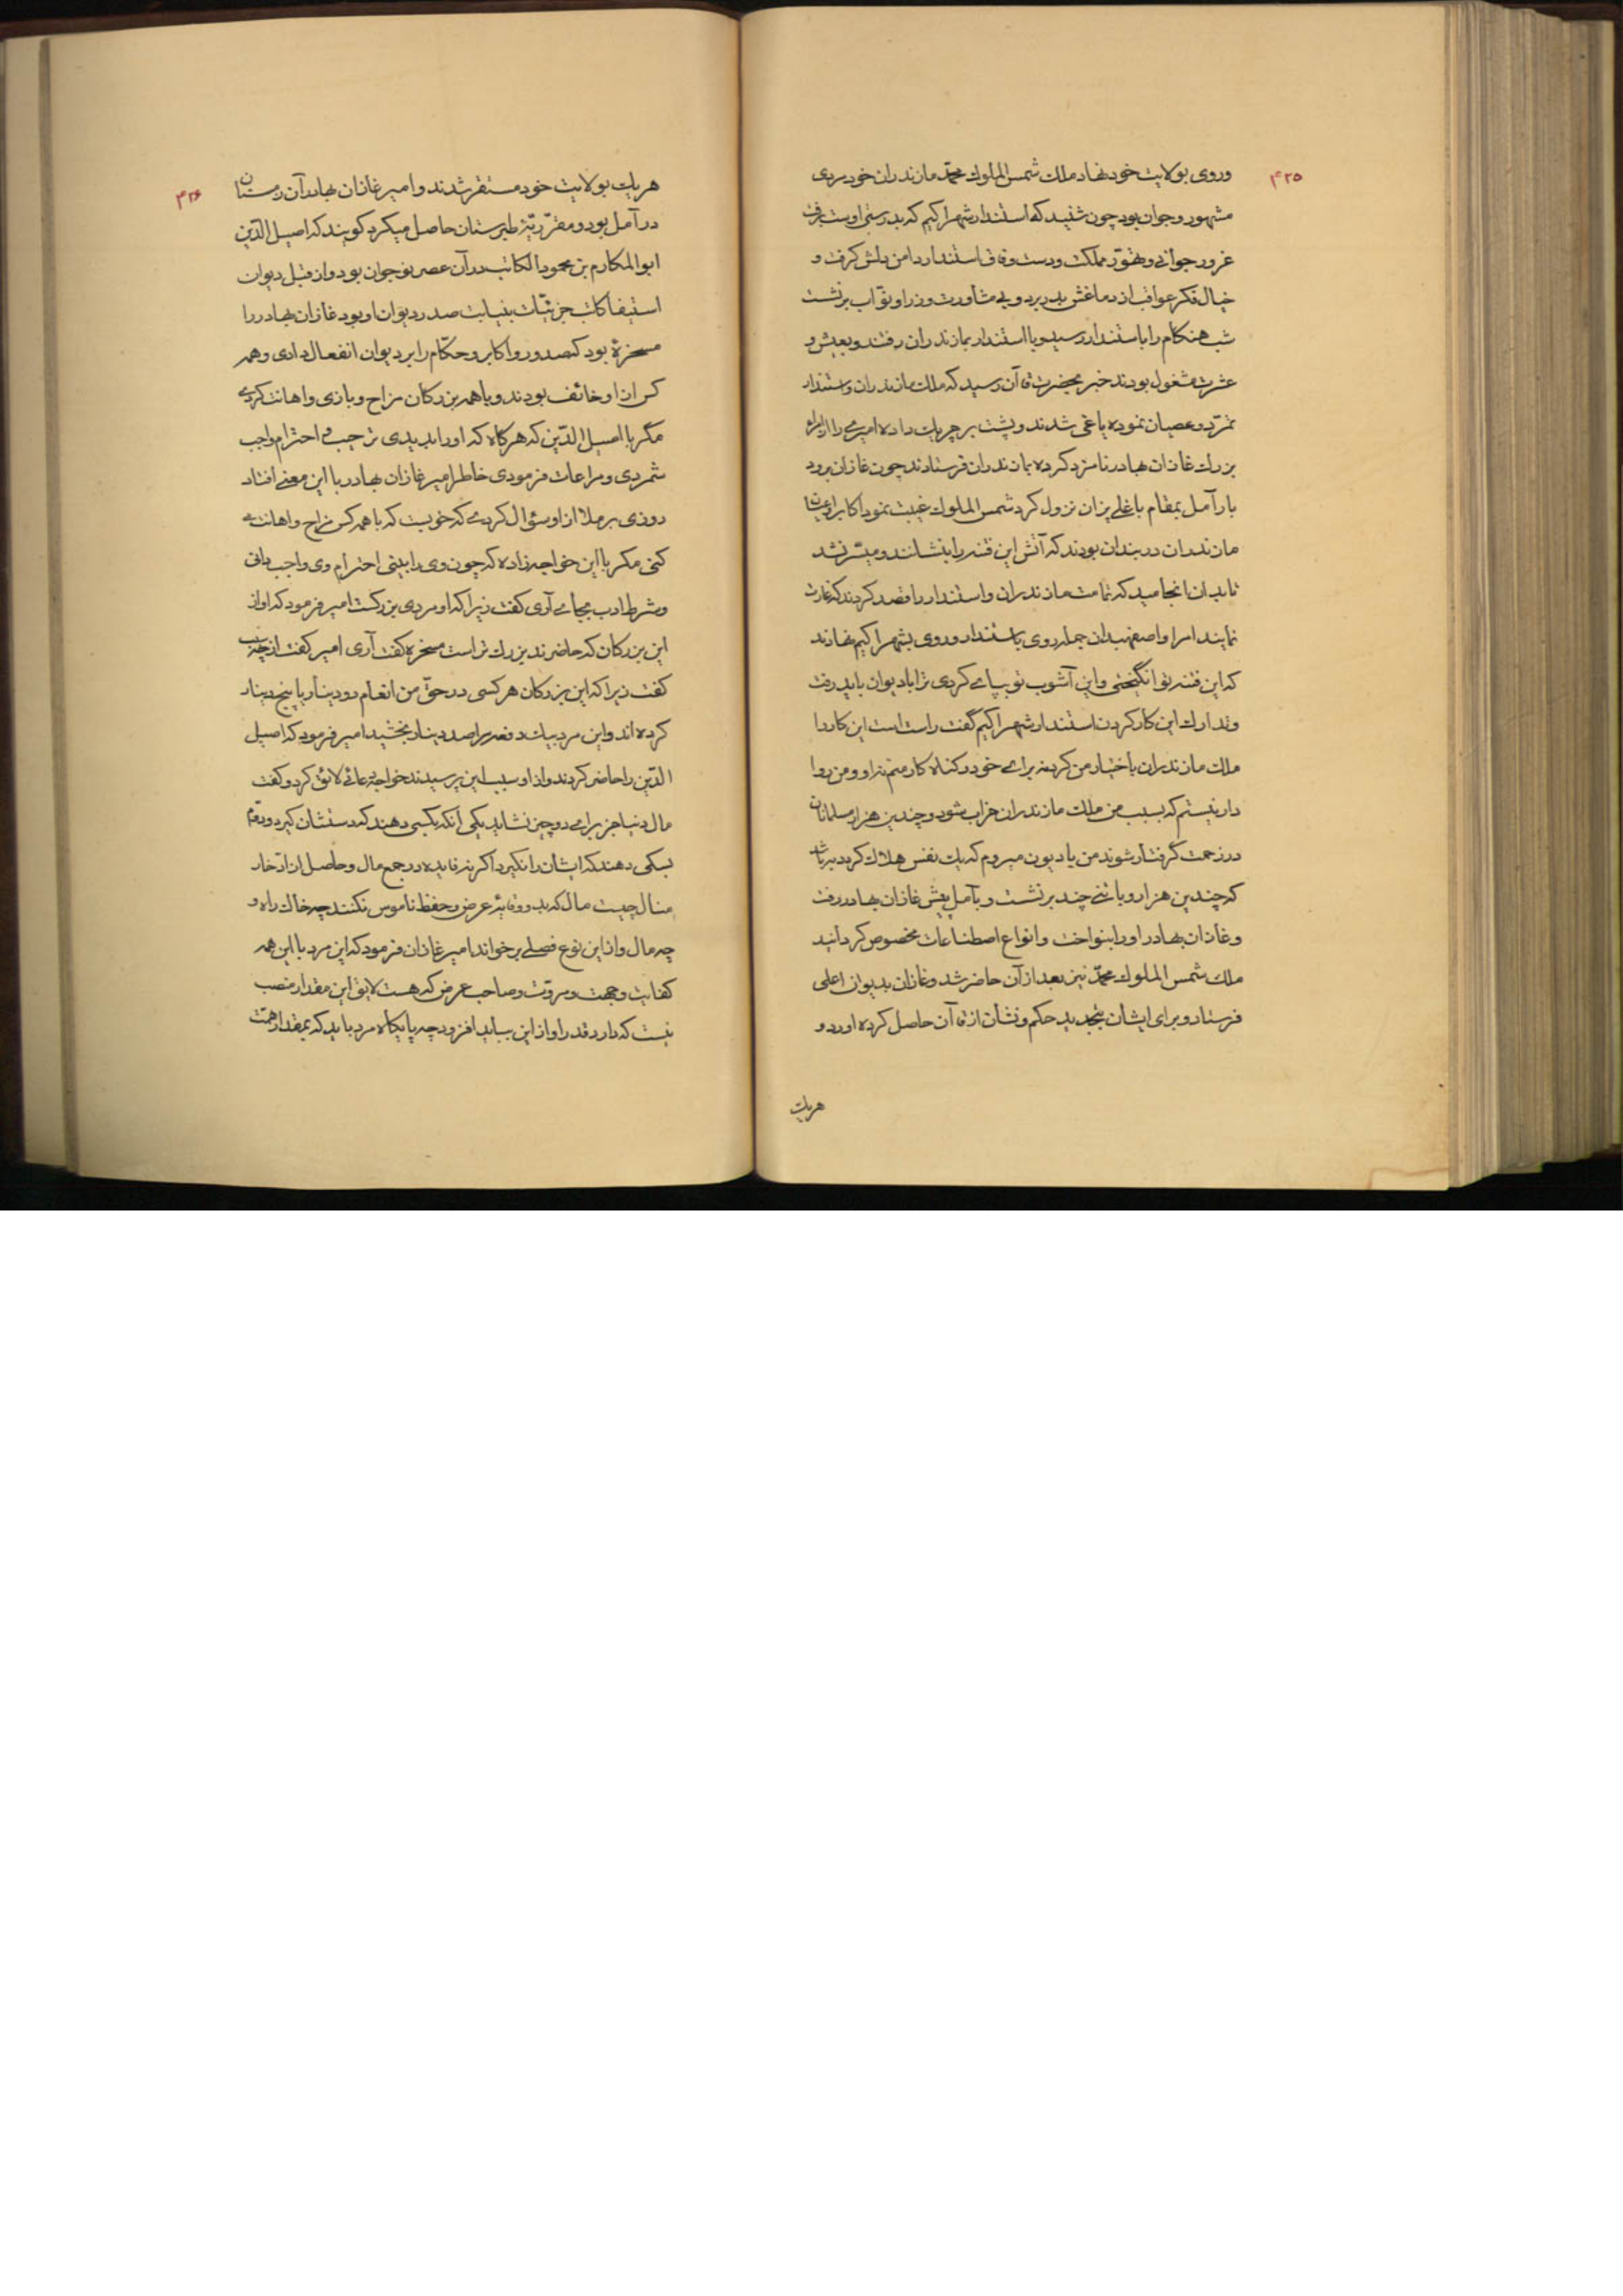 ۴۲۵
وروی بولایت خود نهاد ملک شمس الملوک محمّد مازندران خود مردی
مشهور و جوان بود چون شنید که استندار شهراکیم که پدر زنی اوست برفت
غرور جوانی و تهوّر مملکت و دست وفاق استندار دامن دلش گرفت و
خیال فکر عواقب از دماغش بدر برد و بی مشاورت وزرا و نوّاب برنشست
شب هنگام را باستندار رسید و با استندار بمازندران رفتند و بعیش و
عشرت مشغول بودند خبر بحضرت قاآن رسید که ملک مازندران و استندار
تمرّد و عصیان نموده یاغی شدند و پشت بر چریک داده امیری را از امرای
بزرک غازان بهادر نامزد کرده بمازندران فرستادند چون غازان برود
بار آمل بمقام باغلی پزان نزول کرد شمس الملوک غیبت نمود اکابر و اعیان
مازندران در بندان بودند که آتش این فتنه را بنشانند و میسّر نشد
تا بدان انجامید که تمامت مازندران و استندار را قصد کردند که غارت
نمایند امرا و اصفهبدان جمله روی باستندار و روی بشهراکیم نهادند
که این فتنه تو انگیختی و این آشوب تو پیامی کردی ترا بادیوان باید رفت
و تدارک این کار کردن استندار شهراکیم گفت راست است این کار را
ملک مازندران باختیار من کرد نه برای خود در گناه کار منم نه او و من روا
دار نیستم که بسبب من ملک مازندران خراب شود و چندین هزار مسلمانان
در زحمت گرفتار شوند من یادیون میروم که یک نفس هلاک گردد به باشد
که چندین هزار و با تنی چند برنشست و بآمل پیش غازان بهادر رفت
و غازان بهادر او را بنواخت و انواع اصطناعات مخصوص کردانید
ملک شمس الملوک محمّد نیز بعد از آن حاضر شد و غازان بدیوان اعلی
فرستاد و برای ایشان بتجدید حکم و نشان از قاآن حاصل کرده اورد و
هریک
۴۲۶
هریک بولایت خود مستقر شدند و امیر غازان بهادر آن زمستان
در آمل بود و مقرّریّهٔ طبرستان حاصل میکرد کویند که اصیل الدّین
ابو المکارم بن محمود الکاتب در آن عصر نوجوان بود و از قبل دیوان
استیفا کاتب جزئیّات بنیابت صدر دیوان او بود غازان بهادر را
مسخرهٔ بود که صدور و اکابر و حکّام را بر دیوان انفعال دادی و همه
کس از او خائف بودند و با همه بزرکان مزاح و بازی و اهانت کردی
مگر با اصیل الدّین که هرگاه که او را بدیدی ترحیب و احترام واجب
شمردی و مراعات فرمودی خاطر امیر غازان بهادر با این معنی افتاد
روزی برملا از او سؤال کردی که خوبست که با همه کس مزاح و اهانت
کنی مکر با این خواجه زاده که چون وی را بینی احترام وی واجب دانی
و شرط ادب بجای آوری کفت زیرا که او مردی بزرکست امیر فرمود که او از
این بزرکان که حاضرند بزرک تر است مسخره کفت آری امیر کفت از چه سبب
کفت زیرا که این بزرکان هر کسی در حقّ من انعام دو دینار یا پنج دینار
کرده اند و این مرد بیک دفعه مرا صد دینار بخشید امیر فرمود که اصیل
الدّین را حاضر کردند و از او سبب این پرسیدند خواجه دعائی لائق کرد و کفت
مال دنیا جز برای دو چیز نشاید یکی آنکه بکسی دهند که دستشان کیرد و دوّم
بسکی دهند که ایشان را نکیرد اکر نه فایده در جمع مال و حاصل از ادّخار
منال چیست مال که بدو وقایهٔ عرض و حفظ ناموس نکنند چه خاک راه و
چه مال و از این نوع فصلی برخواند امیر غازان فرمود که این مرد با این همه
کفایت و همت و مروّت و صاحب عرض که هست لایق این مقدار منصب
نیست که دارد قدر او از این بباید افزود چه پایکاه مرد باید که بمقدار همّت